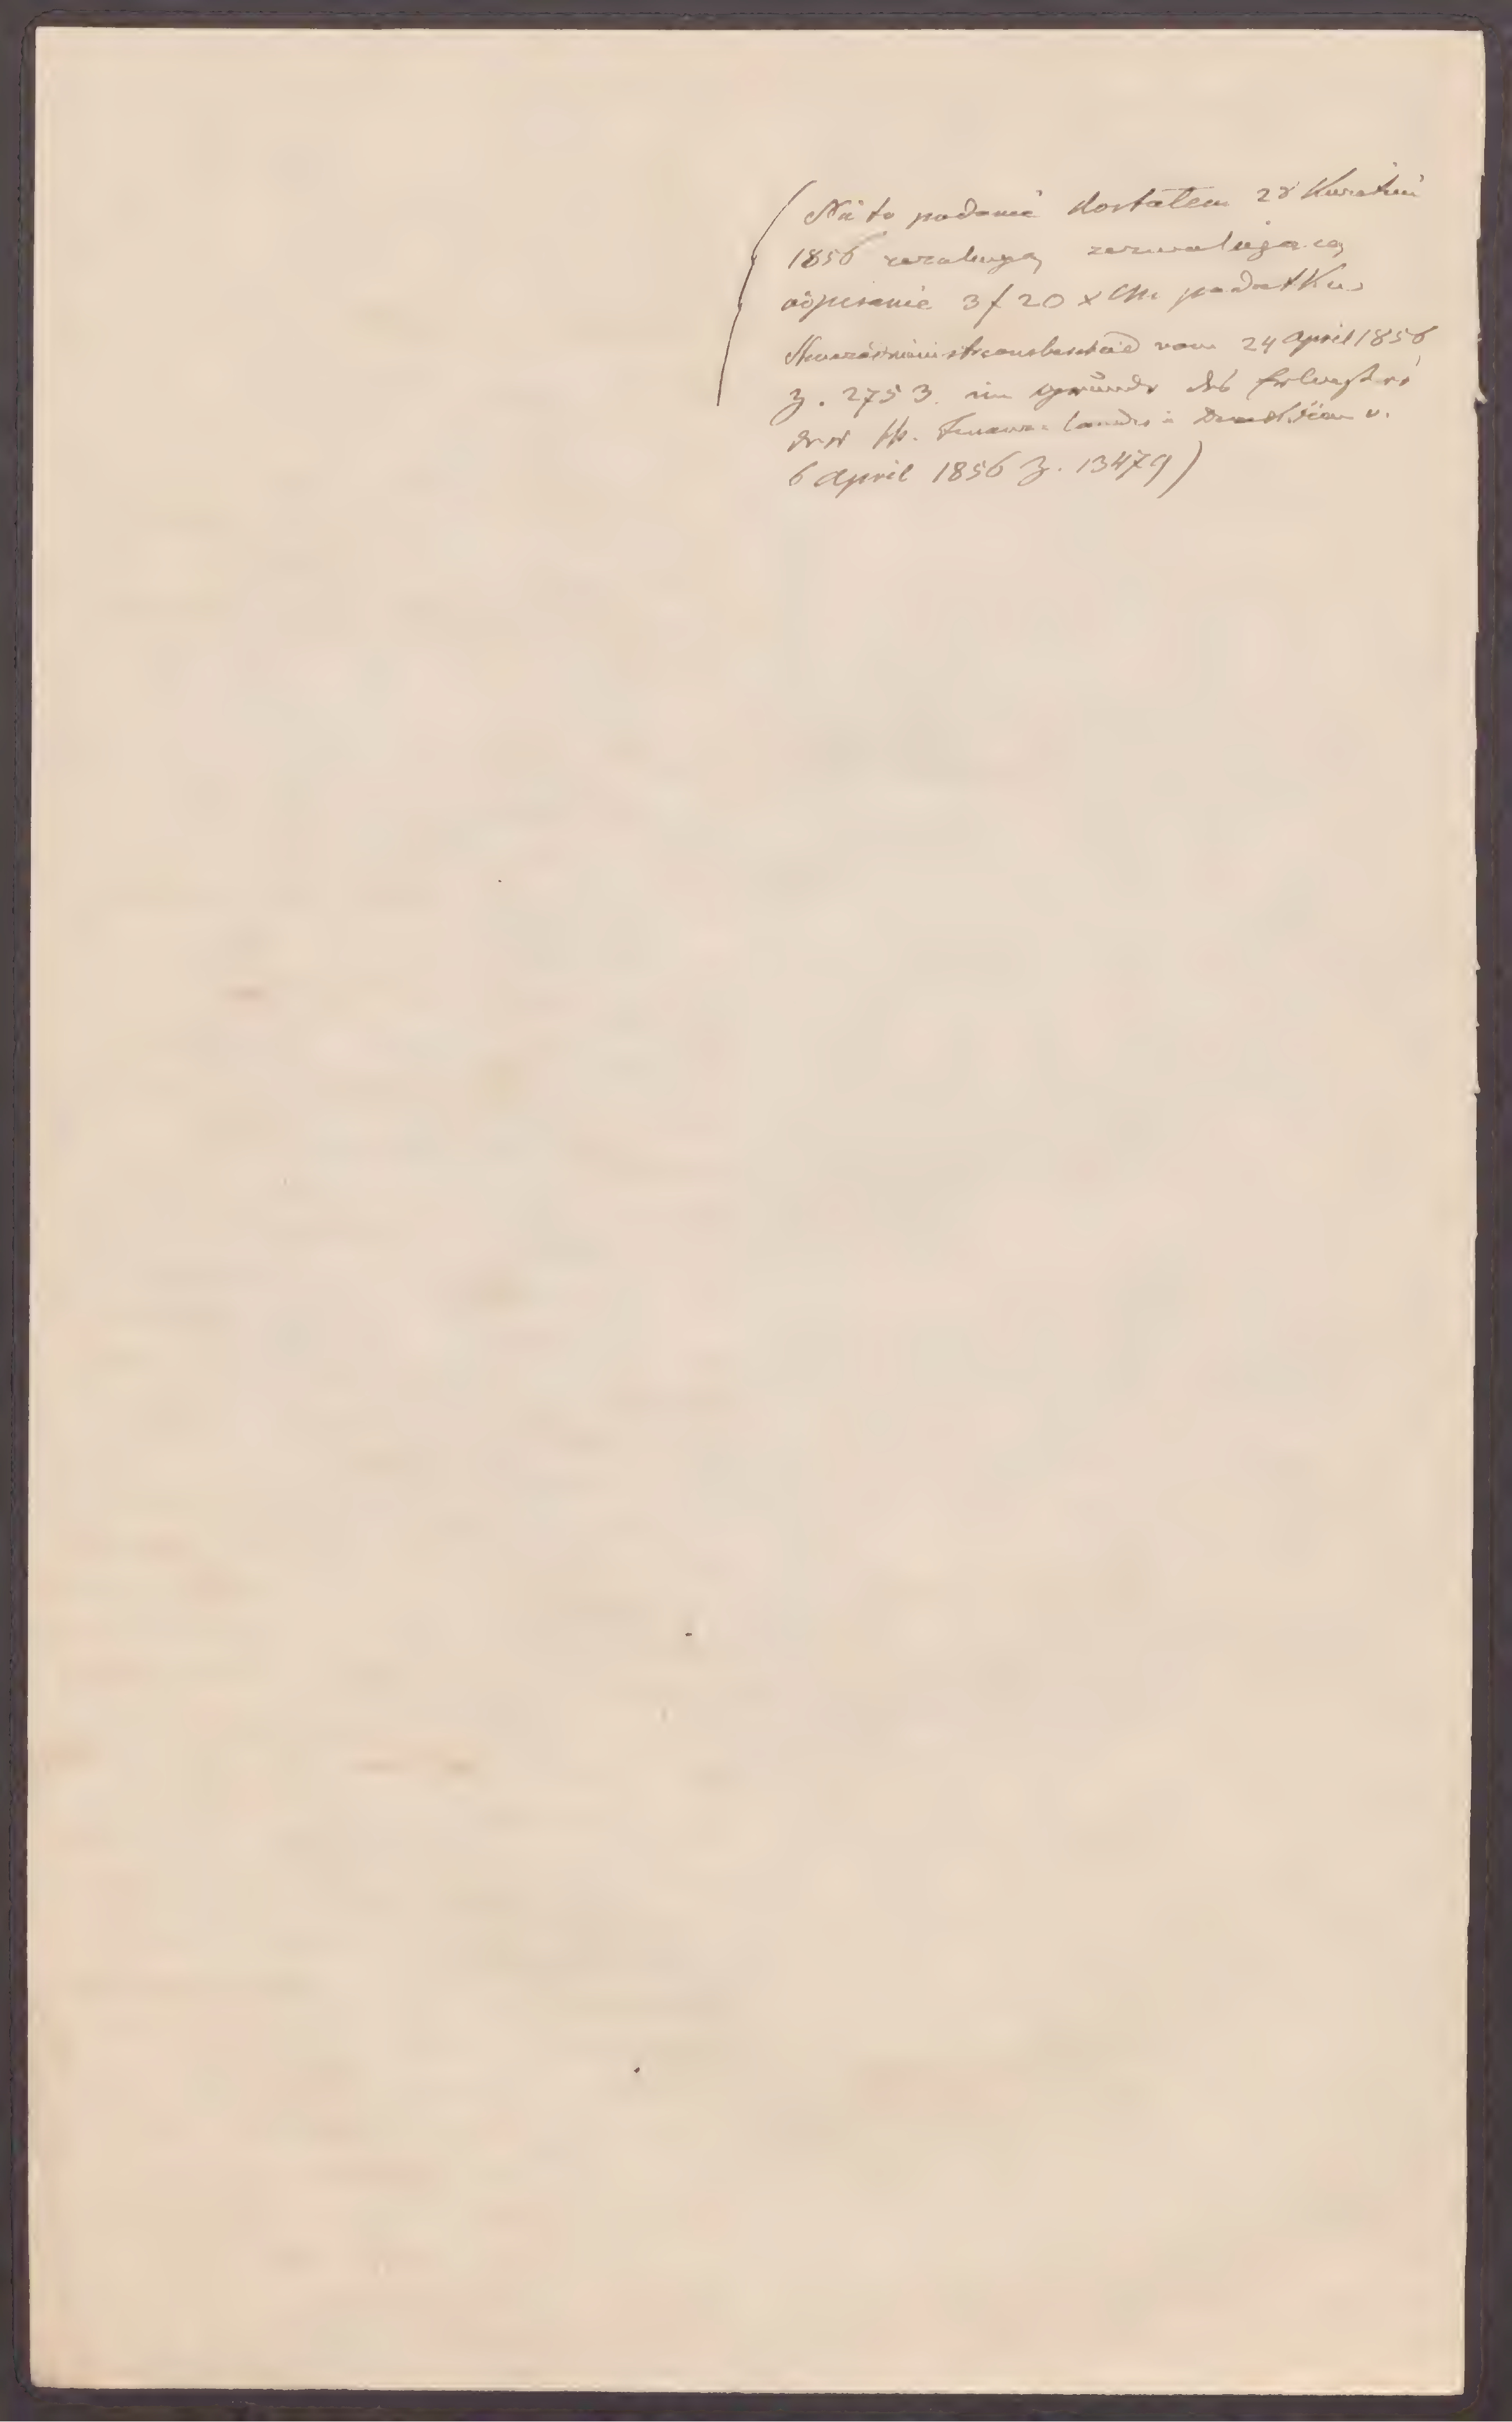 (Na to podanie dostałem 28 Kwietnia
1856 rezolucyą zezwalającą
odpisanie 3 f 20 x CM. podatku
vom 24 April 1856
Z. 2753. im Grunde des Erlasses
der kk. Finanz-Landes-Direktion v.
6 April 1856 Z. 13479)